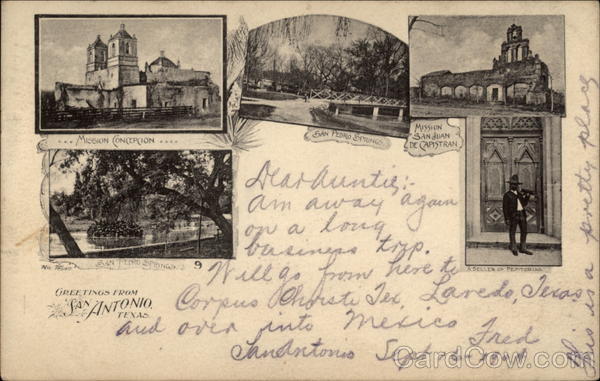 MISSION CONCEPCION
SAN PEDRO SPRINGS
MISSION
SAN JUAN
DE CAPISTRAN
SAN PEDRO SPRINGS
9
A SELLER OF PEPITORIAS
GREETINGS FROM
SAN
ANTONIO,
TEXAS.
Dear Auntie:-
Am away again
on a long
business trip.
Will go from here to
Corpus Christe Tex, Laredo, Texas
and over into Mexico
Fred
San Antonio Sept
This is a pretty place
CardCow.com